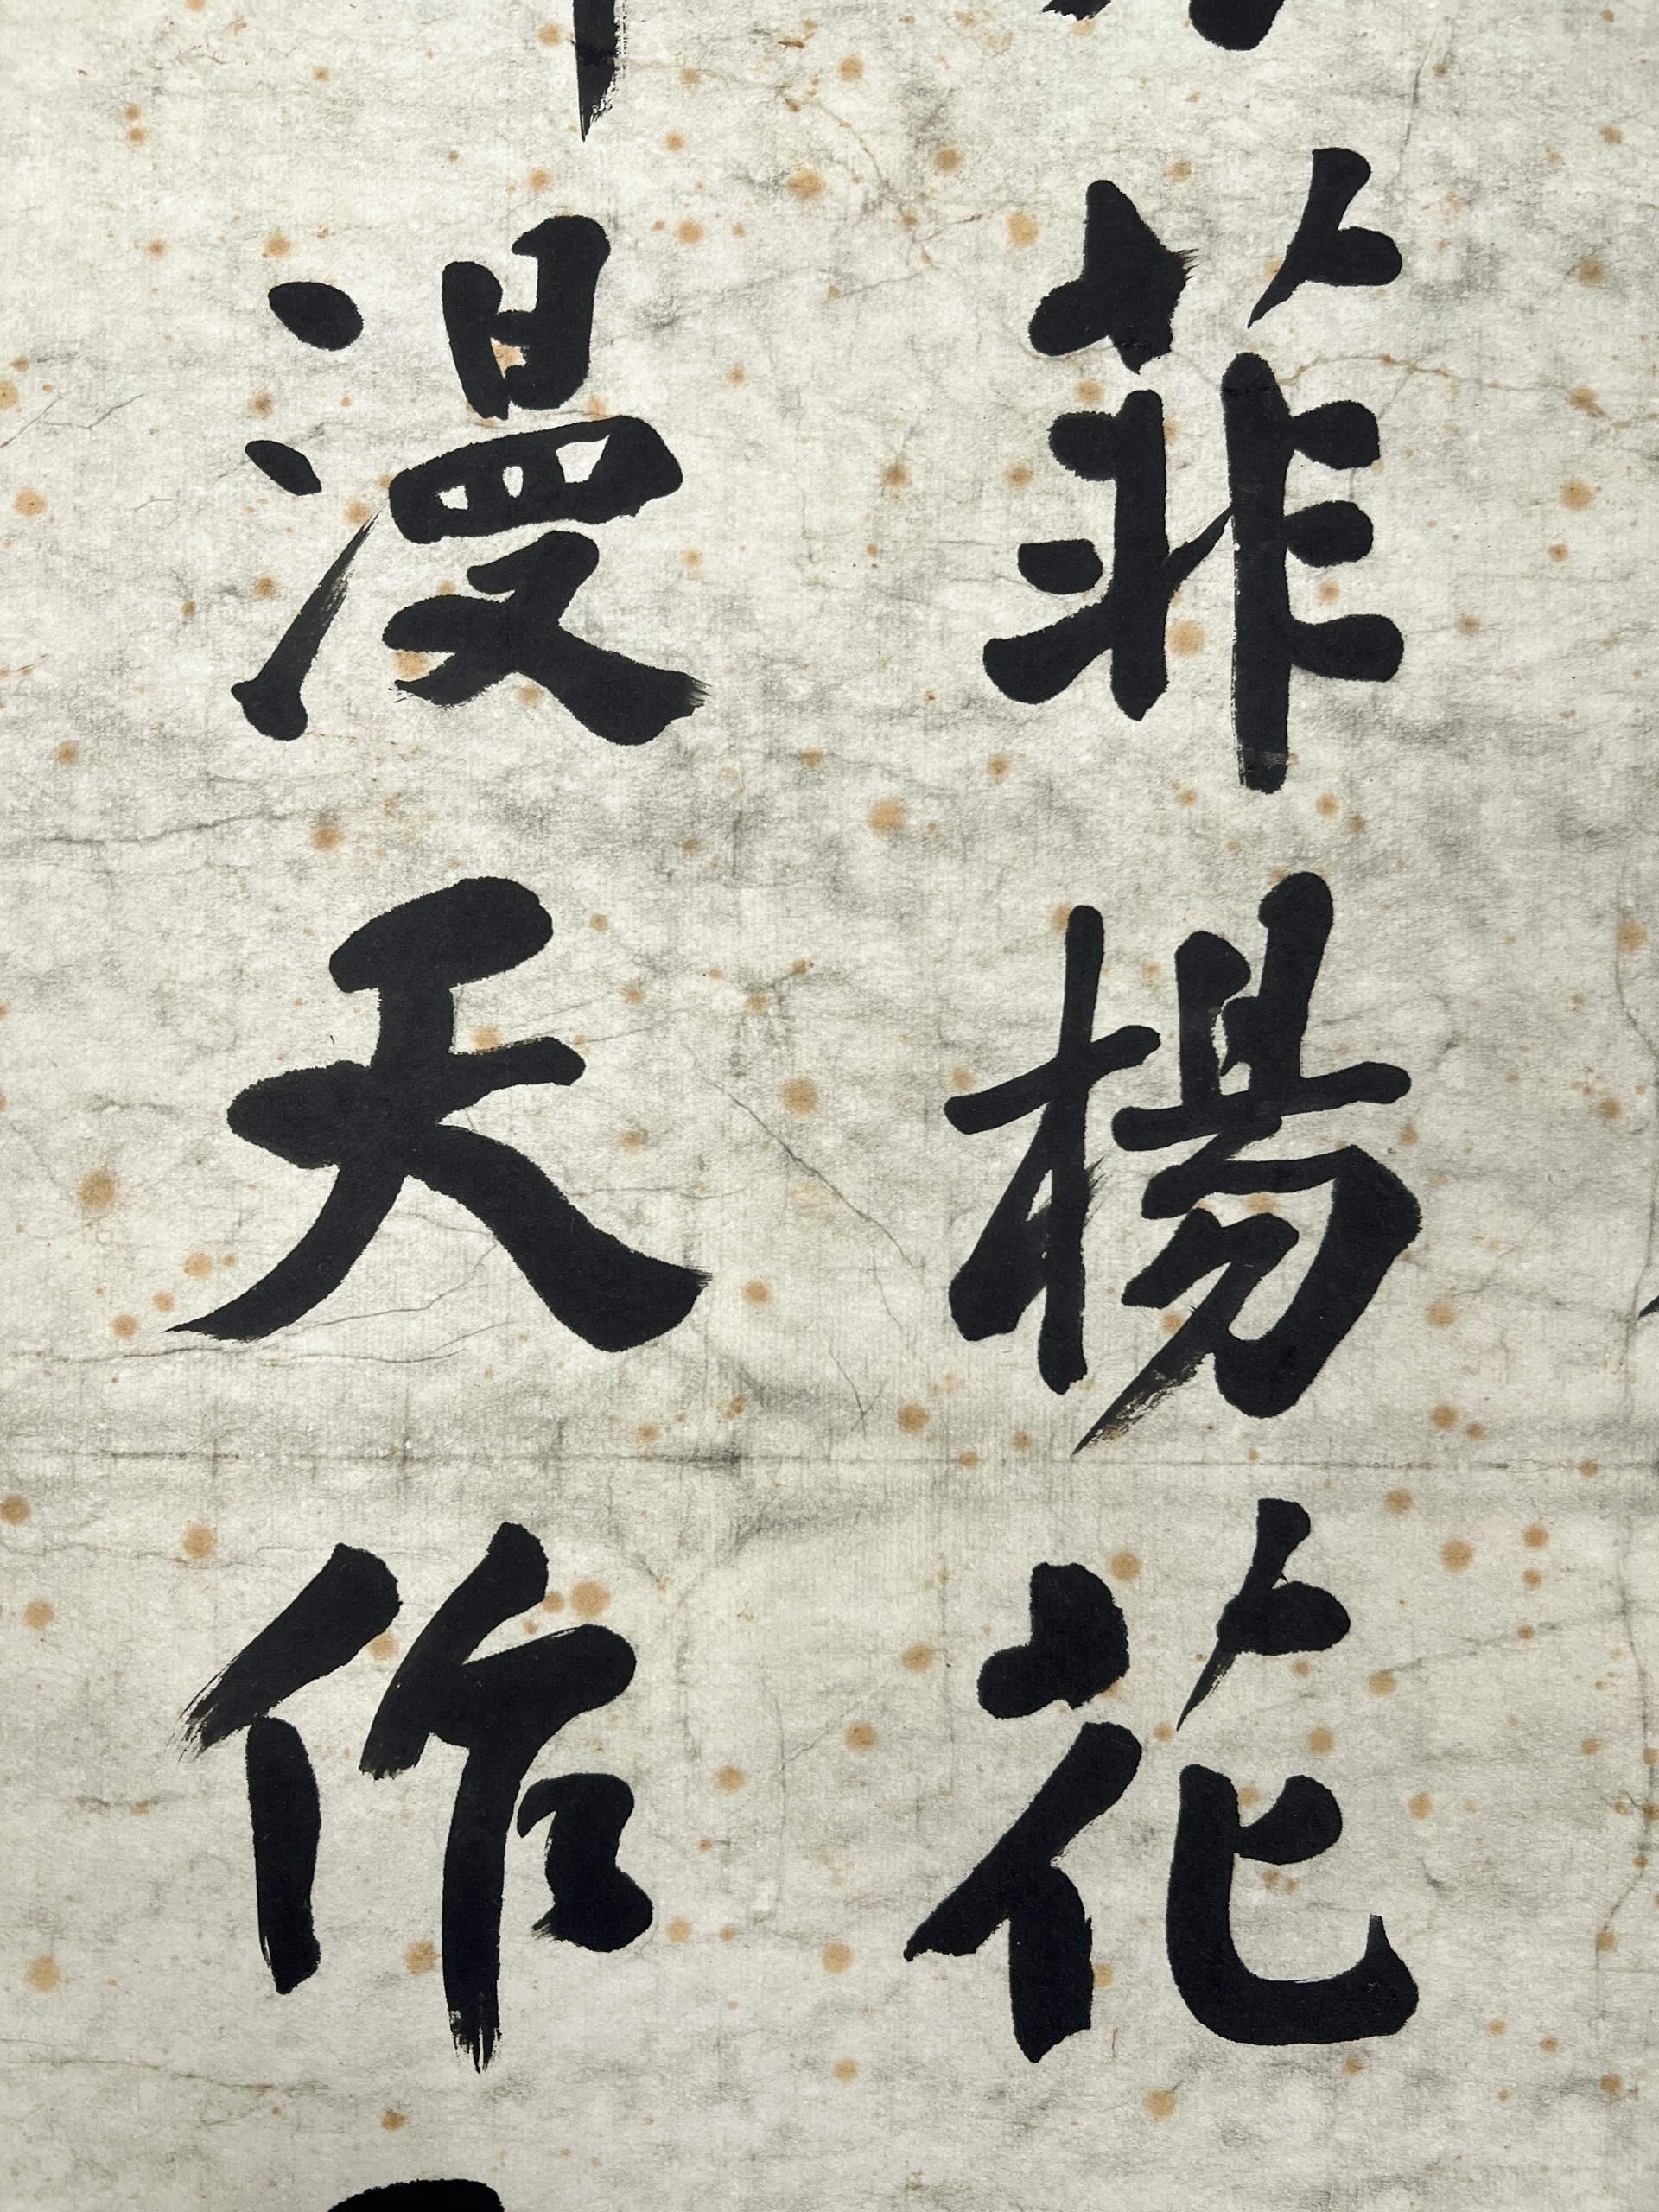 菲楊花
漫天作